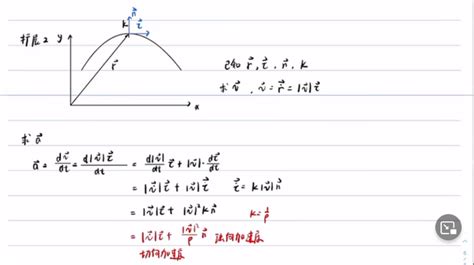 扩展2 y k n⃗ t⃗
r⃗
x
已知 r⃗, t⃗, n⃗, k
求 v⃗, v⃗ = ṙ⃗ = |v⃗|t⃗
求 a⃗
a⃗ = dv⃗/dt = d|v⃗|t⃗/dt = d|v⃗|/dt t⃗ + |v⃗|·dt⃗/dt
= |v̇⃗|t⃗ + |v⃗|ṫ⃗ ṫ⃗ = k|v⃗|n⃗
= |v̇⃗|t⃗ + |v⃗|²kn⃗ k = 1/ρ
= |v̇⃗|t⃗ + |v⃗|²/ρ n⃗ 法向加速度
切向加速度